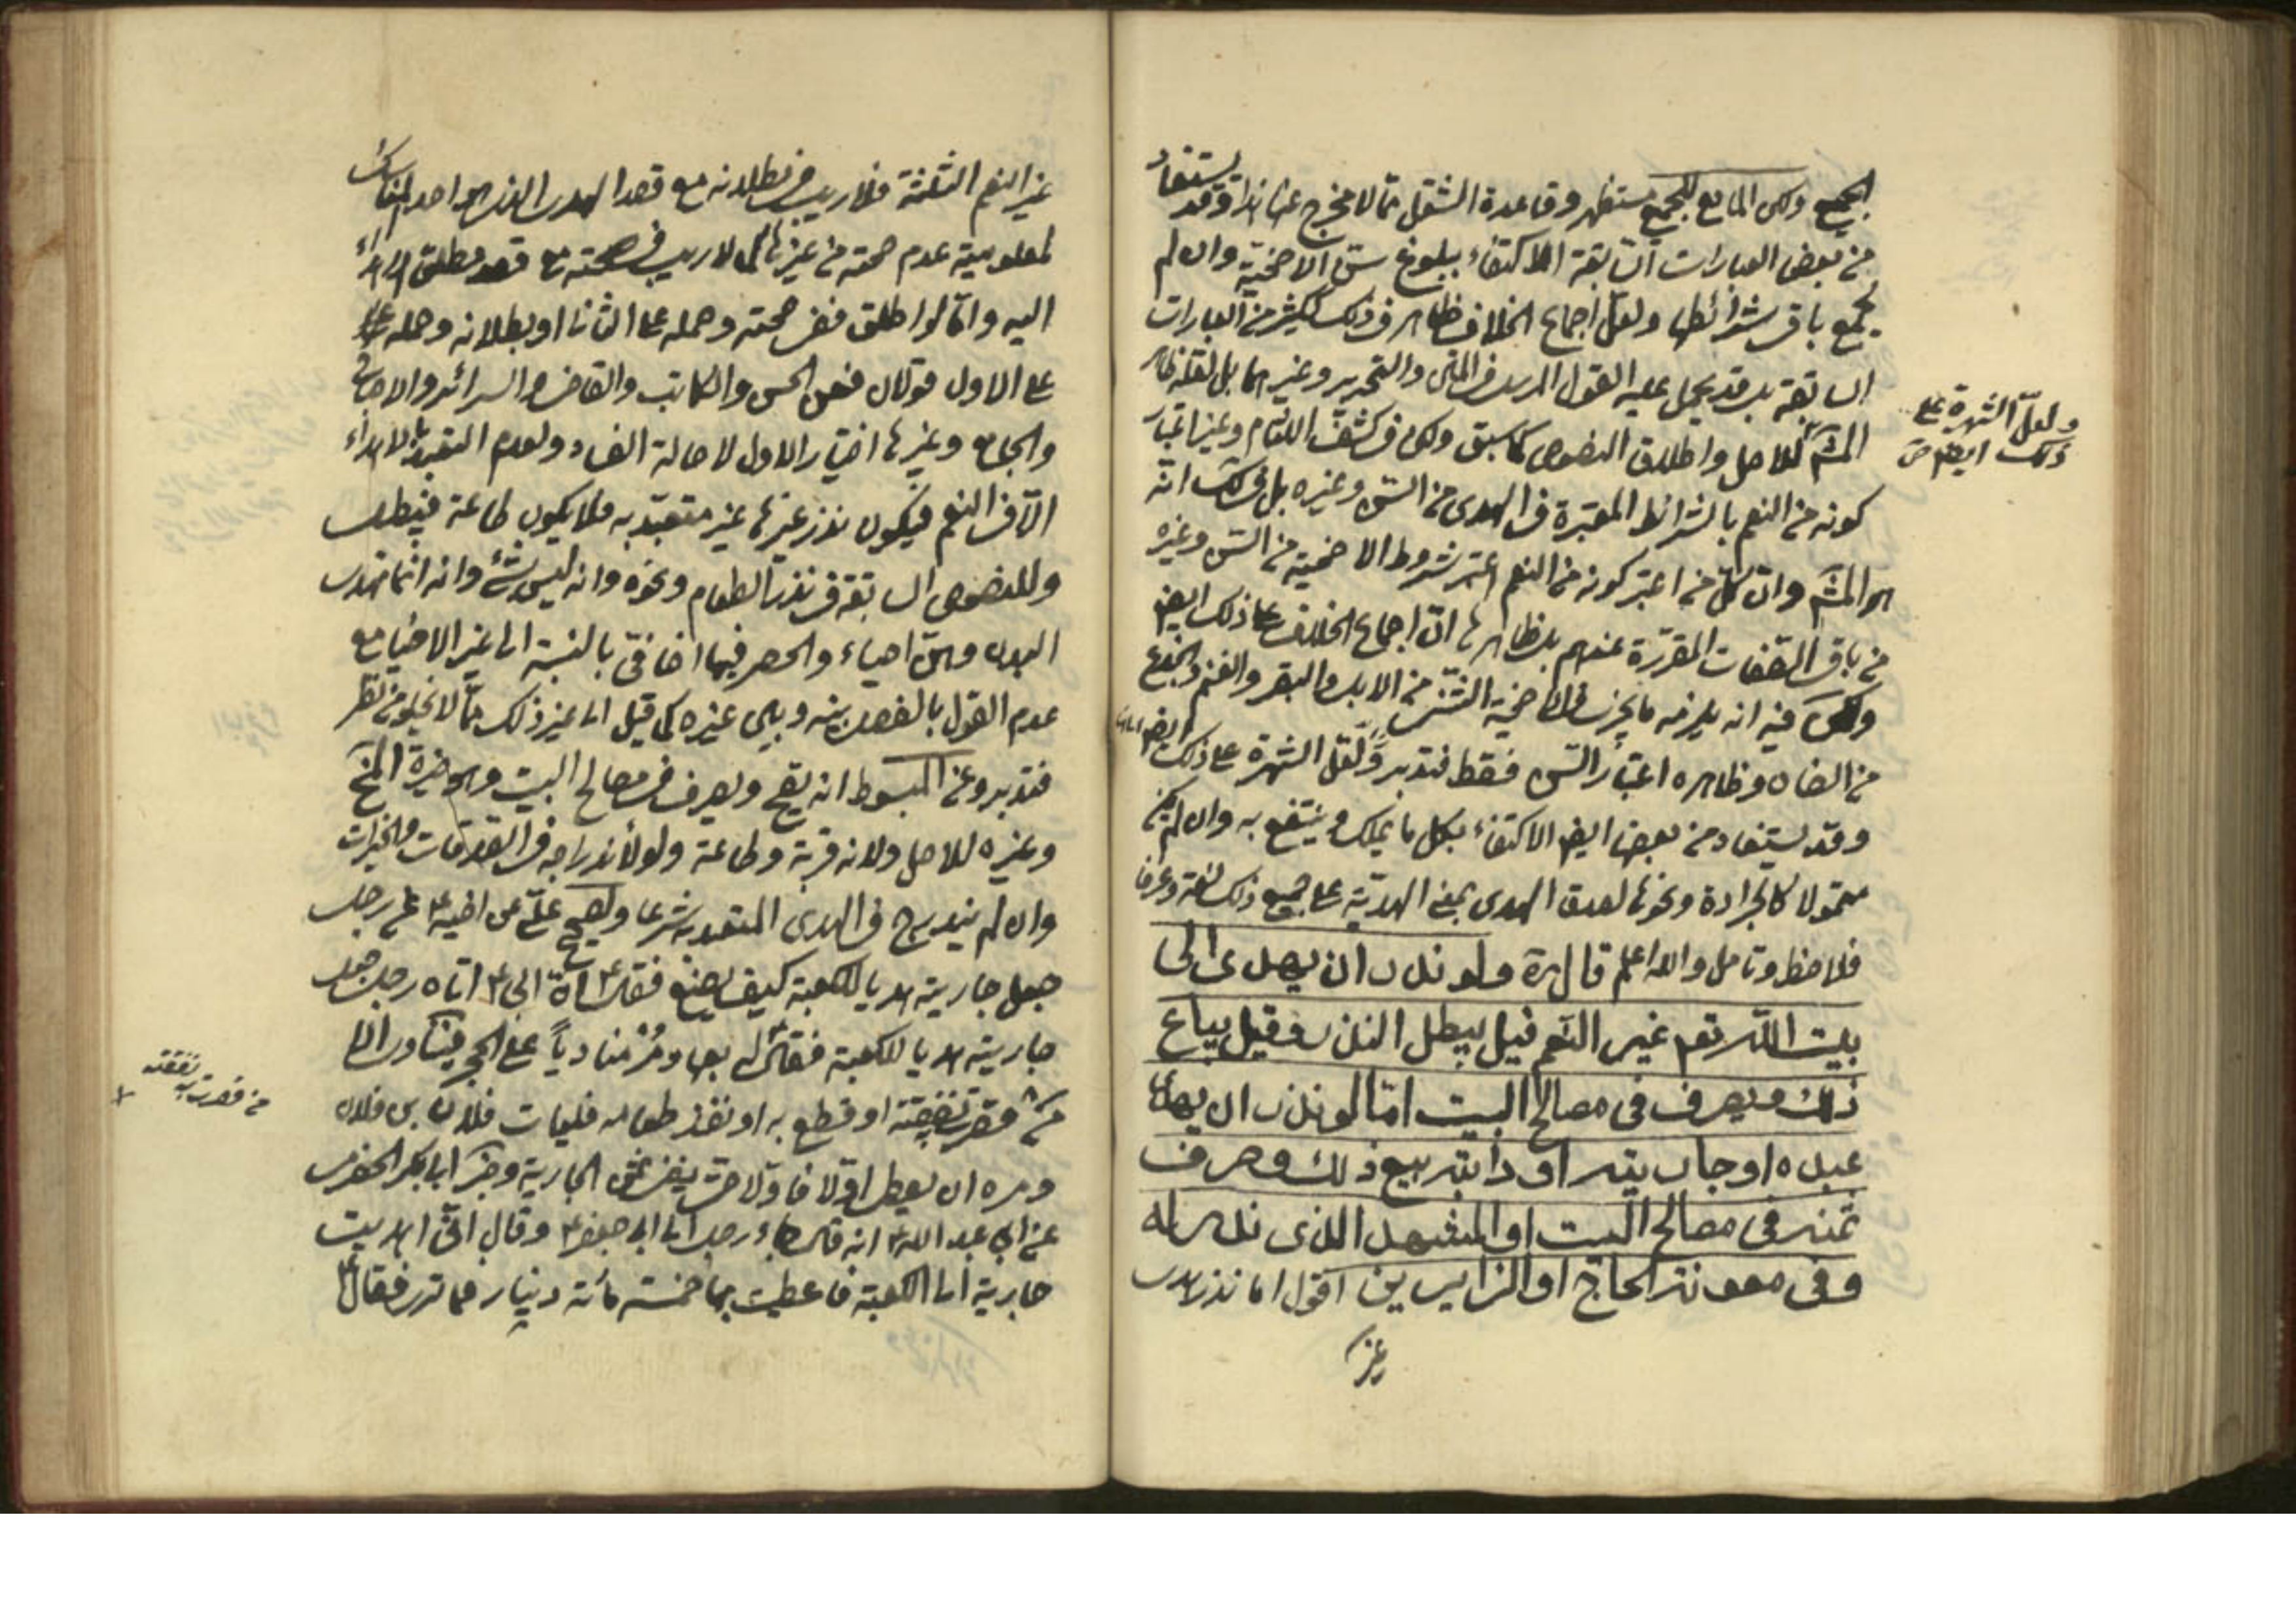 الجميع ولكن المانع للجميع مستظهر وقاعدة الشغل ممّا لا مخرج عنها هذا وقد يستفاد
من بعض العبارات السابقة الاكتفاء ببلوغ سنّ الاضحيّة وان لم
يجمع باقى شرائطها ولعلّ اجماع الخلاف ظاهر فى ذلك ككثير من العبارات
السابقة بل قد يحمل عليه القول المزبور فى المتن والتحرير وغيرهما بل لعلّه ظاهر
المشهـ للاصل واطلاق النصوص كما سبق ولكن فى كشف اللثام وغيره اعتبار
كونه من النعم بالشرائط المعتبرة فى الهدى من السنّ وغيره بل فى انّه
هو المشهـ وانّ كلّ من اعتبر كونه من النعم اعتبر شروط الاضحية من السنّ وغيره
من باقى الصفات المقرّرة عندهم بل ظاهرها انّ اجماع الخلاف على ذلك ايضا
ولكن فيه انه يلزمه ما يجزى فى الاضحية الثنىّ من الابل والبقر والغنم والجذع
من الضان وظاهره اعتبار السنّ فقط فتدبر ولعلّ الشهرة على ذلك ايضا
وقد يستفاد من بعض ايضا الاكتفاء بكل ما يملك وينتفع به وان لم يكن
متمولا كالجرادة ونحوها لصدق الهدى بمعنى الهديّة على جميع ذلك لغة وعرفا
فلاحظ وتامل والله اعلم قال ره ولو نذر ان يهدى الى
بيت اللّه تعم غير النّعم قيل يبطل النذر وقيل يباع
ذلك ويصرف فى مصالح البيت امّا لو نذر ان يهدى
عبده او جاريته او دابته بيع ذلك وصرف
ثمنه فى مصالح البيت او المشهد الذى نذر له
وفى معونة الحاجّ او الزايرين اقول اما نذر هدى
غير
ولعلّ الشهرة على
ذلك ايضا
غير النعم الثلثة فلا ريب فى بطلانه مع قصد الهدى الذى هو احد المناسك
لمعلومية عدم صحته من غيرها كما لا ريب فى صحته مع قصد مطلق الاهداء
اليه وامّا لو اطلق ففى صحته وحمله على الثانى او بطلانه وحمله
على الاول قولان فعن الحسن والكاتب والقاضى والسرائر والاصباح
والجامع وغيرها اختيار الاول لاصالة الفساد ولعدم التعبد بالاهداء
الّا فى النعم فيكون نذر غيرها غير متعبّد به فلا يكون طاعة فيبطل
وللنصوص السابقة فى نذر الطعام ونحوه وانه ليس بشئ وانه انّما تهدى
البدن وهنّ احياء والحصر فيها اضافىّ بالنسبة الى غير الاحياء مع
عدم القول بالفصل بينه وبين غيره كما قيل الى غير ذلك ممّا لا يخلو من نظر
فتدبر وعن المبسوط انه يصح ويصرف فى مصالح البيت وهو خيرة
وغيره للاصل ولانه قربة وطاعة ولو لاندراجه فى الصدقات والخيرات
وان لم يندرج فى الهدى المتعبد به شرعا ولصحيح علىّ عن اخيه ع عن رجل
جعل جاريته هديا للكعبة كيف يصنع فقال ع انّ ابى ع اتاه رجل جعل
جاريته هديا للكعبة فقال له بعها ومُرْ مناديا على الحجر فينادى الا
من قصرت نفقته او قطع به او نفد طعامه فليات فلان بن فلان
ومره ان يعطى اوّلا فاوّلا حتى ينفد ثمن الجارية وخبر ابابكر الحضرمى
عن ابى عبد الله ع انه قال جاء رجل الى ابى جعفر ع وقال انّى اهديت
جارية الى الكعبة فاعطيت بها خمسة مائة دينار فما ترى فقال ع
من قصرت به نفقته